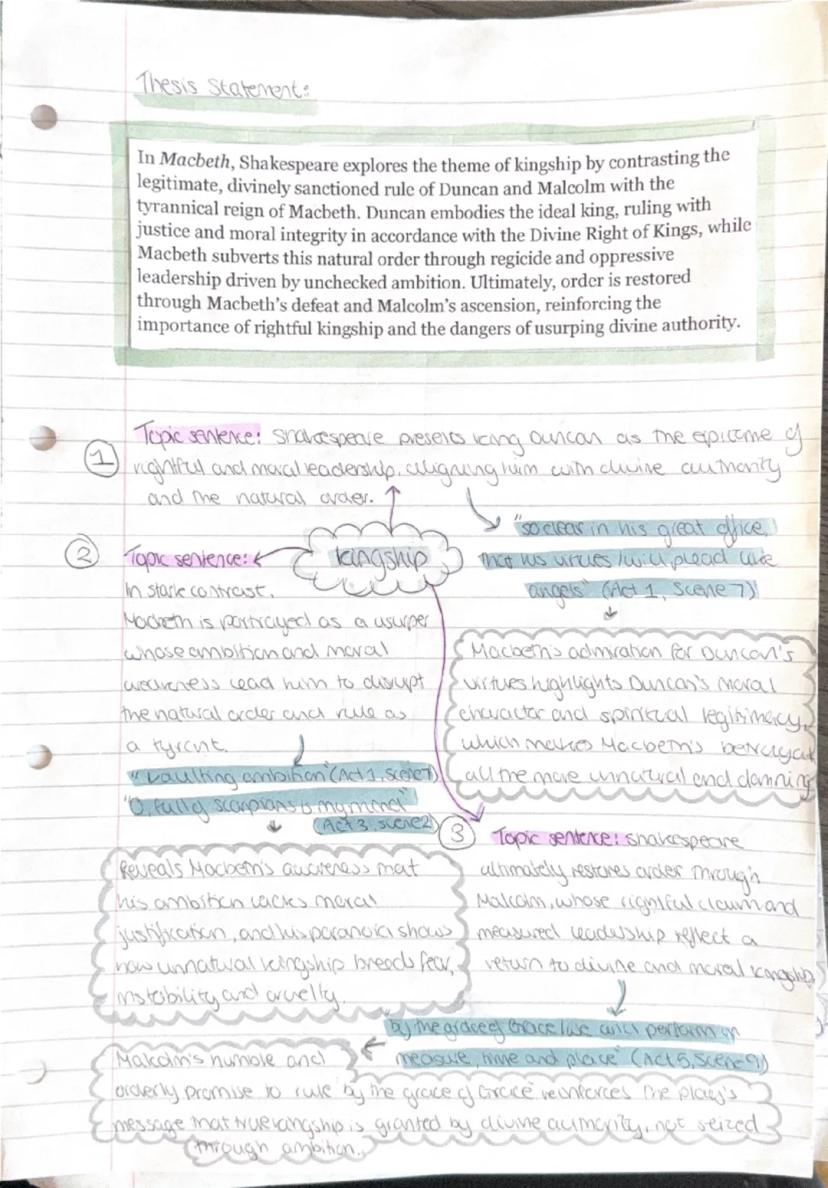 Thesis Statement:
In Macbeth, Shakespeare explores the theme of kingship by contrasting the
legitimate, divinely sanctioned rule of Duncan and Malcolm with the
tyrannical reign of Macbeth. Duncan embodies the ideal king, ruling with
justice and moral integrity in accordance with the Divine Right of Kings, while
Macbeth subverts this natural order through regicide and oppressive
leadership driven by unchecked ambition. Ultimately, order is restored
through Macbeth's defeat and Malcolm's ascension, reinforcing the
importance of rightful kingship and the dangers of usurping divine authority.
1
Topic sentence: Shakespeare presents King Duncan as the epitome of
rightful and moral leadership, aligning him with divine authority
and the natural order.
kingship
"so clear in his great office,
that his virtues / will plead like
angels" (Act 1, Scene 7)
Macbeth's admiration for Duncan's
virtues highlights Duncan's moral
character and spiritual legitimacy,
which makes Macbeth's betrayal
all the more unnatural and damning
2
Topic sentence:
In stark contrast,
Macbeth is portrayed as a usurper
whose ambition and moral
weakness lead him to disrupt
the natural order and rule as
a tyrant.
"vaulting ambition" (Act 1, Scene 7)
"O, full of scorpions is my mind"
(Act 3, scene 2)
Reveals Macbeth's awareness that
his ambition lacks moral
justification, and his paranoia shows
how unnatural kingship breeds fear,
instability and cruelty.
3
Topic sentence: Shakespeare
ultimately restores order through
Malcolm, whose rightful claim and
measured leadership reflect a
return to divine and moral kingship
by the grace of Grace / we will perform in
measure, time and place" (Act 5, Scene 9)
Malcolm's humble and
orderly promise to rule 'by the grace of Grace' reinforces the play's
message that true kingship is granted by divine authority, not seized
through ambition.